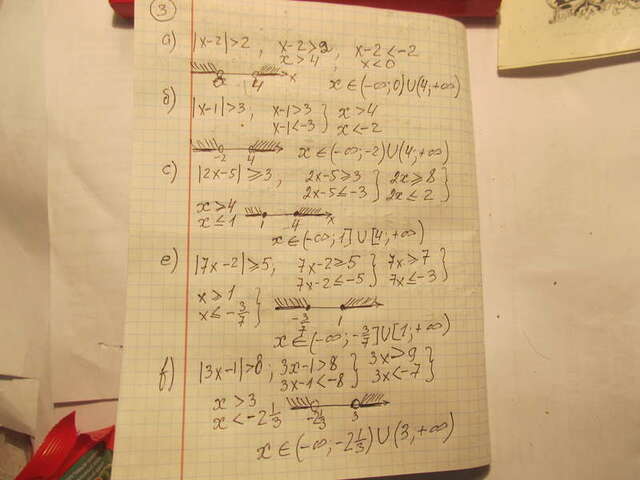 3
a) |x-2|>2, x-2>2, x-2<-2
x>4 x<0
0 4 x x ∈ (-∞; 0) ∪ (4; +∞)
б) |x-1|>3, x-1>3 } x>4
x-1<-3 } x<-2
-2 4 x ∈ (-∞; -2) ∪ (4; +∞)
c) |2x-5| ⩾3, 2x-5⩾3 } 2x⩾8
2x-5⩽-3 } 2x⩽2
x>4
x⩽1 1 4 x
x ∈ (-∞; 1] ∪ [4; +∞)
e) |7x-2|⩾5, 7x-2⩾5 } 7x⩾7
7x-2⩽-5 } 7x⩽-3
x⩾1
x⩽-3/7 } -3/7 1
x ∈ (-∞; -3/7] ∪ [1; +∞)
f) |3x-1|>8; 3x-1>8 } 3x>9
3x-1<-8 } 3x<-7
x>3
x<-2 1/3 -2 1/3 3
x ∈ (-∞, -2 1/3) ∪ (3, +∞)